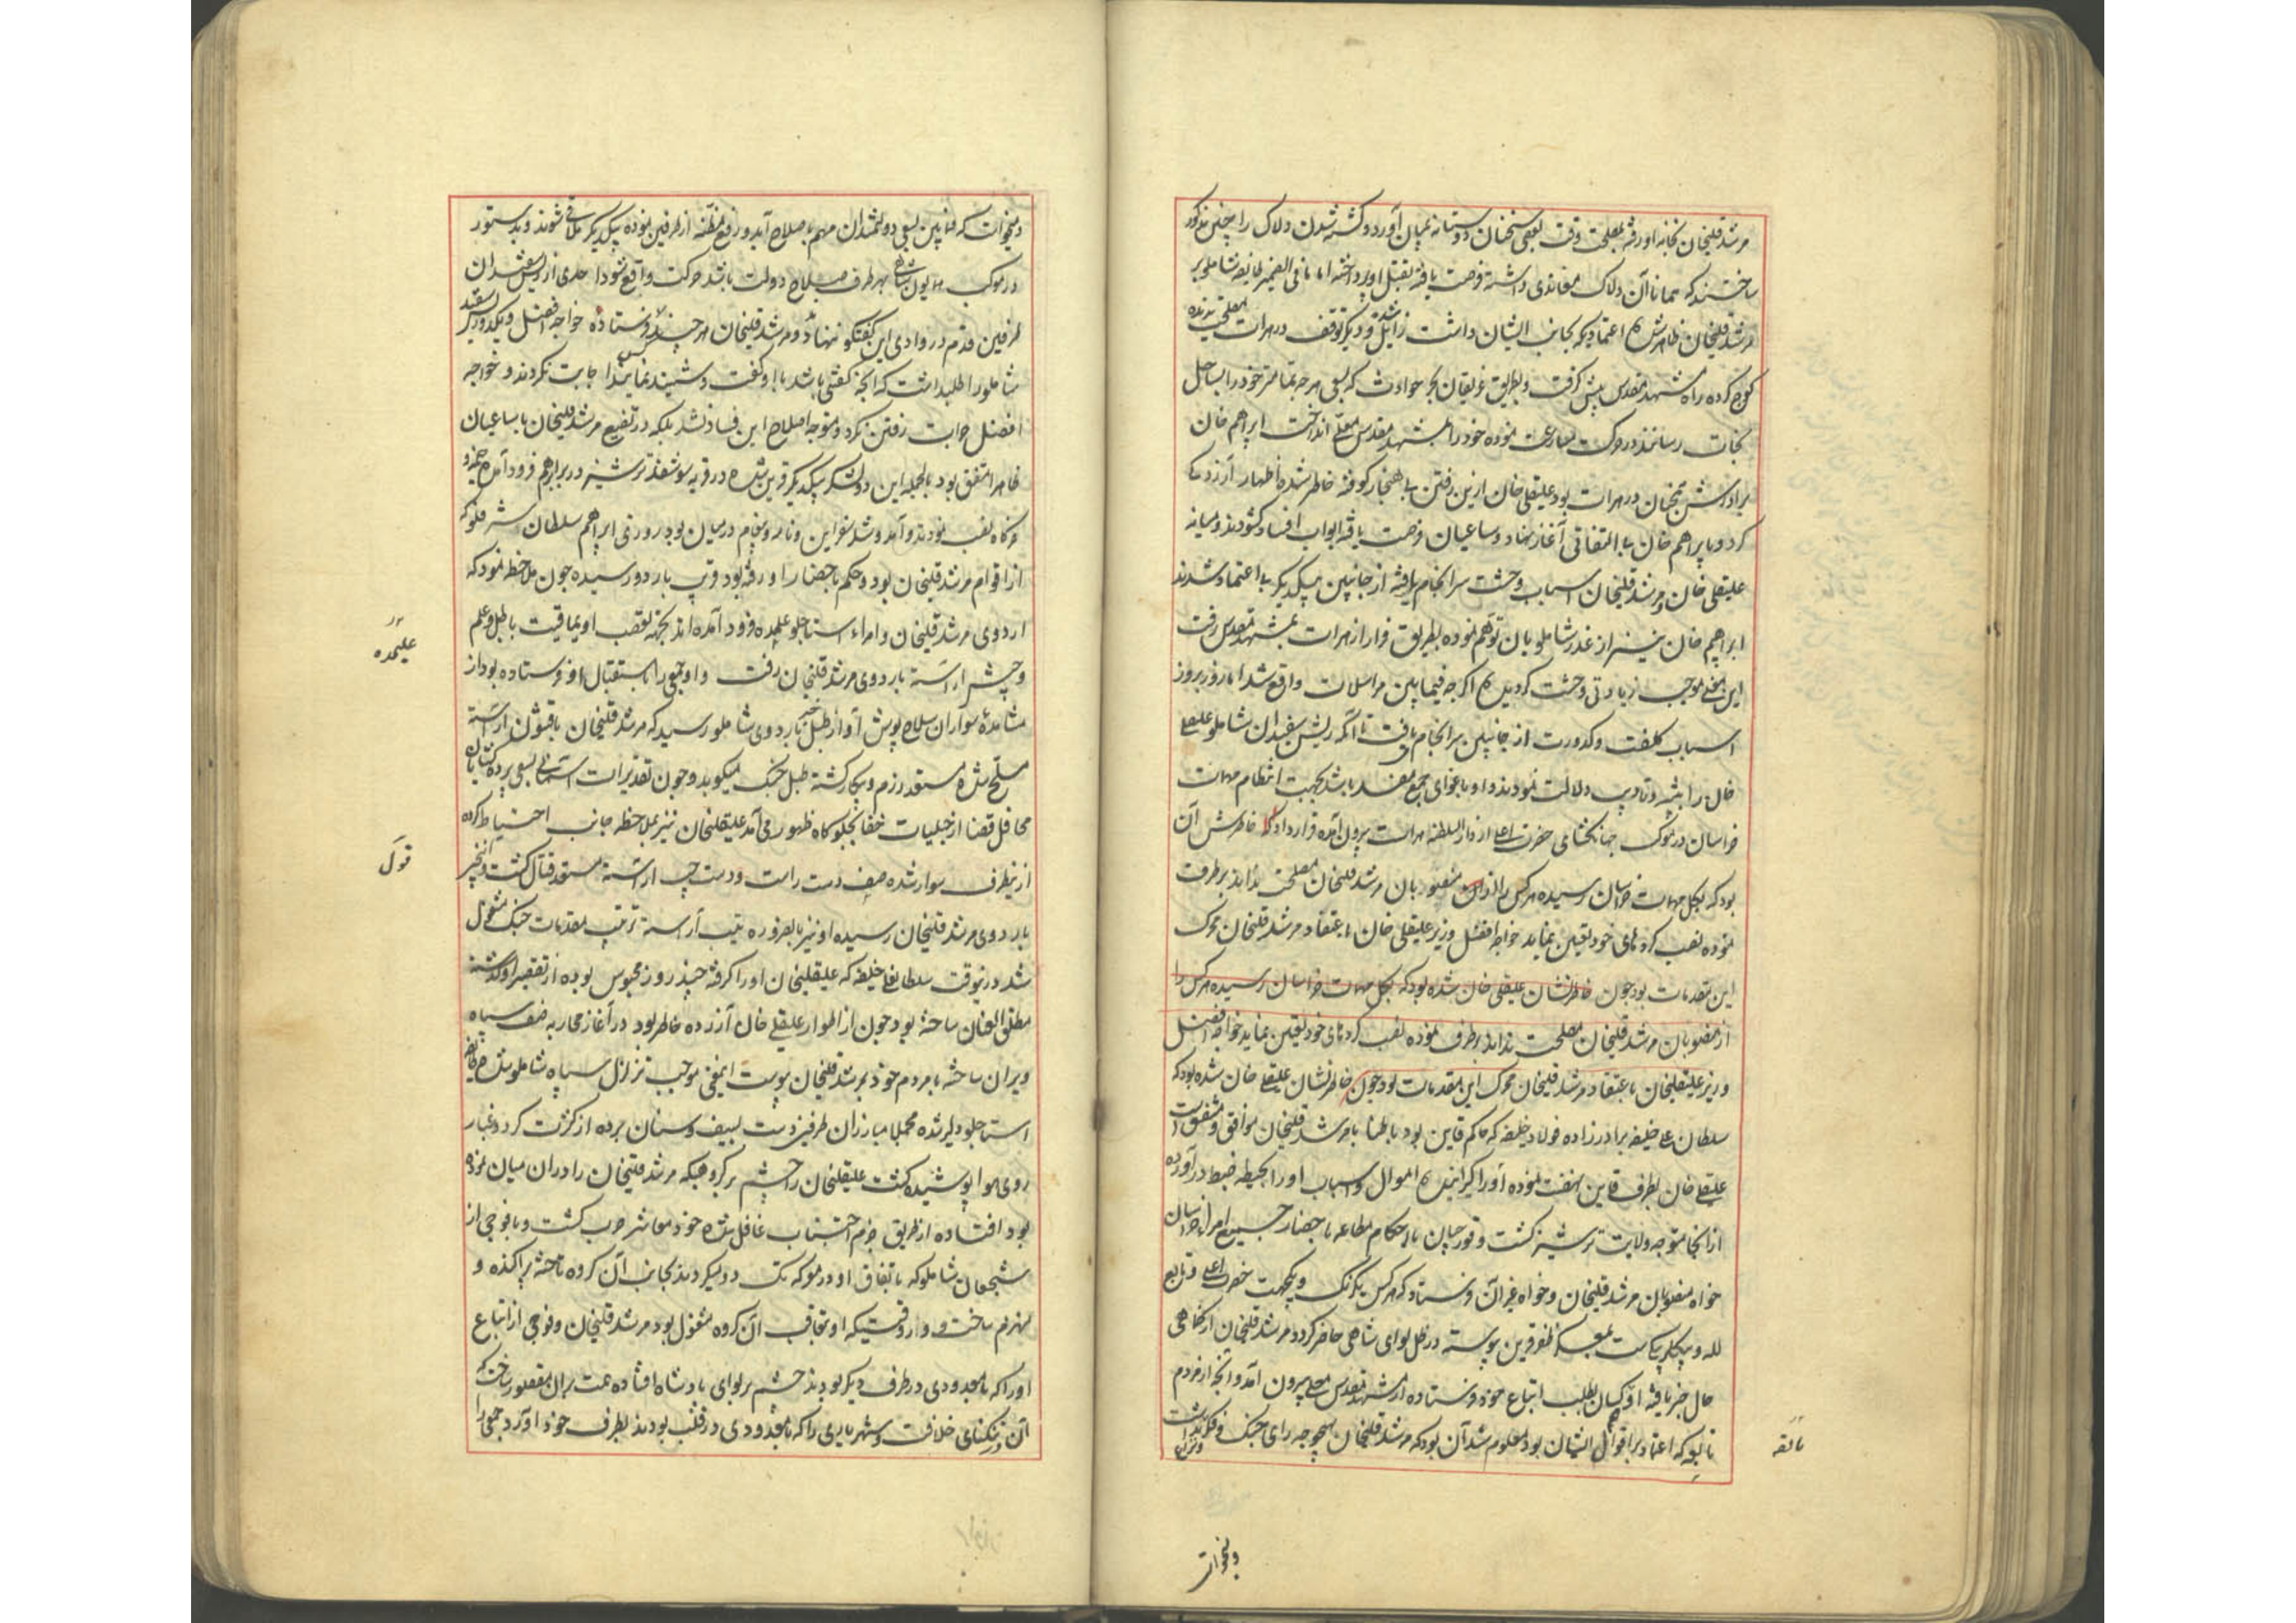 مرشد قلیخان بخانه او رفته بمصلحت وقت بعضی سخنان دوستانه بمیان آورد و کشته شدن دلاک را چنین مذکور
ساختند که همانا آن دلاک معاندی داشته فرصت یافته بقتل او پرداخته اما ما فی الضمیر طایفه شاملو بر
مرشد قلیخان ظاهر شده اعتمادیکه بجانب ایشان داشت زایل شد و دیگر توقف در هرات مصلحت ندیده
کوچ کرده راه مشهد مقدس پیش گرفت و بطریق غریقان بحر حوادث که بسعی هر چه تمامتر خود را بساحل
نجات رسانند در حرکت مسارعت نموده خود را بمشهد مقدس معلی انداخت ابراهیم خان
برادرش همچنان در هرات بود علیقلی خان ازین رفتن بی هنجار کوفته خاطر شده اظهار آزردگی
کرد و با ابراهیم خان بی التفاتی آغاز نهاد و ساعیان فرصت یافته ابواب افساد گشودند و میانه
علیقلی خان و مرشد قلیخان اسباب وحشت سرانجام یافته از جانبین بیکدیگر بی اعتماد شدند
ابراهیم خان نیز از غدر شاملویان توهم نموده بطریق فرار از هرات بمشهد مقدس رفت
این معنی موجب ازیادتی وحشت گردیده اگر چه فیمابین مراسلات واقع شد اما روز بروز
اسباب کلفت و کدورت از جانبین سرانجام یافت تا آنکه ریش سفیدان شاملو علیقلی
خان را بتنبیه و تادیب دلالت نمودند و او باغوای جمع مفسد بجهت انتظام مهمات
خراسان در موکب جهانگشای حضرت اعلی از دار السلطنه هرات بیرون آمده قرار داد که خاطرش آن
بود که بکل مهمات خراسان رسیده هر کس را از آن منصوبان مرشد قلیخان مصلحت نداند بر طرف
نموده نصب کرده‌های خود تعیین نماید خواجه افضل وزیر علیقلی خان باعتقاد مرشد قلیخان محرک
این مقدمات بود چون خاطرنشان علیقلی خان شده بود که بکل مهمات خراسان رسیده هر کس را
از منصوبان مرشد قلیخان مصلحت نداند بر طرف نموده نصب کرده‌های خود تعیین نماید خواجه افضل
وزیر علیقلیخان باعتقاد مرشد قلیخان محرک این مقدمات بود چون خاطرنشان علیقلی خان شده بود که
سلطان علی خلیفه برادرزاده فولاد خلیفه که حاکم قاین بود باطنا با مرشد قلیخان موافق و متفق است
علیقلی خان بطرف قاین نهضت نموده او را گیرانیده اموال و اسباب او را بحیطه ضبط درآورده
از آنجا متوجه ولایت ترشیز گشت و قورچیان با احکام مطاعه باحضار جمیع امراء خراسان
خواه منصوبان مرشد قلیخان و خواه غیر آن فرستاد که هر کس یکرنگ و یکجهت حضرت اعلی و تابع
لله و بیگلربیگیست بمعسکر ظفر قرین پیوسته در ظل لوای شاهی حاضر گردد مرشد قلیخان از کماهی
حال خبر یافته او نیز کسان بطلب اتباع خود فرستاده از مشهد مقدس معلی بیرون آمد و آنچه از مردم
تابعه که اعتماد بر اقوال ایشان بود معلوم شد آن بود که مرشد قلیخان بهیچ وجه رای جنگ و فکر نداشت
و نزاع
تابعه
و میخواست
و میخواست که فیمابین بسعی دولتمندان مهم باصلاح آید و رفع مظنه از طرفین نموده بیکدیگر ملاقی شوند و بدستور
در موکب همایون شاهی بهر طرف صلاح دولت باشد حرکت واقع شود احدی از ریش سفیدان
طرفین قدم در وادی این گفتگو ننهاد و مرشد قلیخان هر چند کس فرستاده خواجه افضل و یکدو ریش سفید
شاملو را طلب داشت که آنچه گفتنی باشد با او گفت و شنید نمایند اجابت نکردند و خواجه
افضل جوابت رفتن نکرد و متوجه اصلاح این فساد نشد بلکه در تضییع مرشد قلیخان با ساعیان
ظاهرا متفق بود بالجمله این دو لشکر بیکدیگر قریب شده در قریه سوسفند ترشیز در برابر هم فرود آمده خیمه و
خرگاه نصب نمودند و آمد و شد سفرا بین و نامه و پیغام در میان بود روزی ابراهیم سلطان شرفلو که
از اقوام مرشد قلیخان بود و حکم باحضار او رفته بود قریب باردو رسیده چون ملاحظه نمود که
اردوی مرشد قلیخان و امراء استاجلو علیحده فرود آمده اند بجهته تعصب اویماقیت با طبل و علم
و حشر آراسته باردوی مرشد قلیخان رفت و او جمعی را باستقبال او فرستاده بود از
مشاهده سواران سلاح پوش آواز طبل جنگ باردوی شاملو رسید که مرشد قلیخان با قشون آراسته
مسلح شده مستعد رزم و پیکار گشته طبل جنگ میکوبد و چون تقدیرات آسمانی بسعی پرده گشایان
محافل قضا از جلبیات خفا بجلوه‌گاه ظهور می‌آمد علیقلیخان نیز بملاحظه جانب احتیاط کرده
ازینطرف سوار شده صف دست راست و دست چپ آراسته مستعد قتال گشت و این خبر
باردوی مرشد قلیخان رسیده او نیز بالضروره تیپ آراسته ترتیب مقدمات جنگ مشغول
شد درینوقت سلطانعلی خلیفه که علیقلیخان او را گرفته چند روز محبوس بوده از تقصیر او گذشته
مطلق العنان ساخته بود چون از اطوار علیقلی خان آزرده خاطر بود در آغاز محاربه صف سپاه
ویران ساخته با مردم خود بمرشد قلیخان پیوست اینمعنی موجب تزلزل سپاه شاملو شده طایفه
استاجلو دلیر شده مجملا مبارزان طرفین دست بسیف و سنان برده از کثرت گرد و غبار
روی هوا پوشیده گشت علیقلیخان را چشم بر گروهیکه مرشد قلیخان را در آن میان نموده
بود افتاده از طریق حزم و اجتناب غافل شده خود مباشر حرب گشت و با فوجی از
شجعان شاملو که باتفاق او در معرکه تک دو میکردند بجانب آن گروه تاخته پراکنده و
منهزم ساخت و در وقتیکه او بتعاقب آن گروه مشغول بود مرشد قلیخان و فوجی از اتباع
او را که با معدودی در طرف دیگر بودند چشم بر لوای پادشاه افتاده همت بر آن مقصور ساخت که
آن در یکتای خلافت و شهریاری را که با معدودی در قلب بودند بطرف خود آورد جمعی را
علیحده
قول